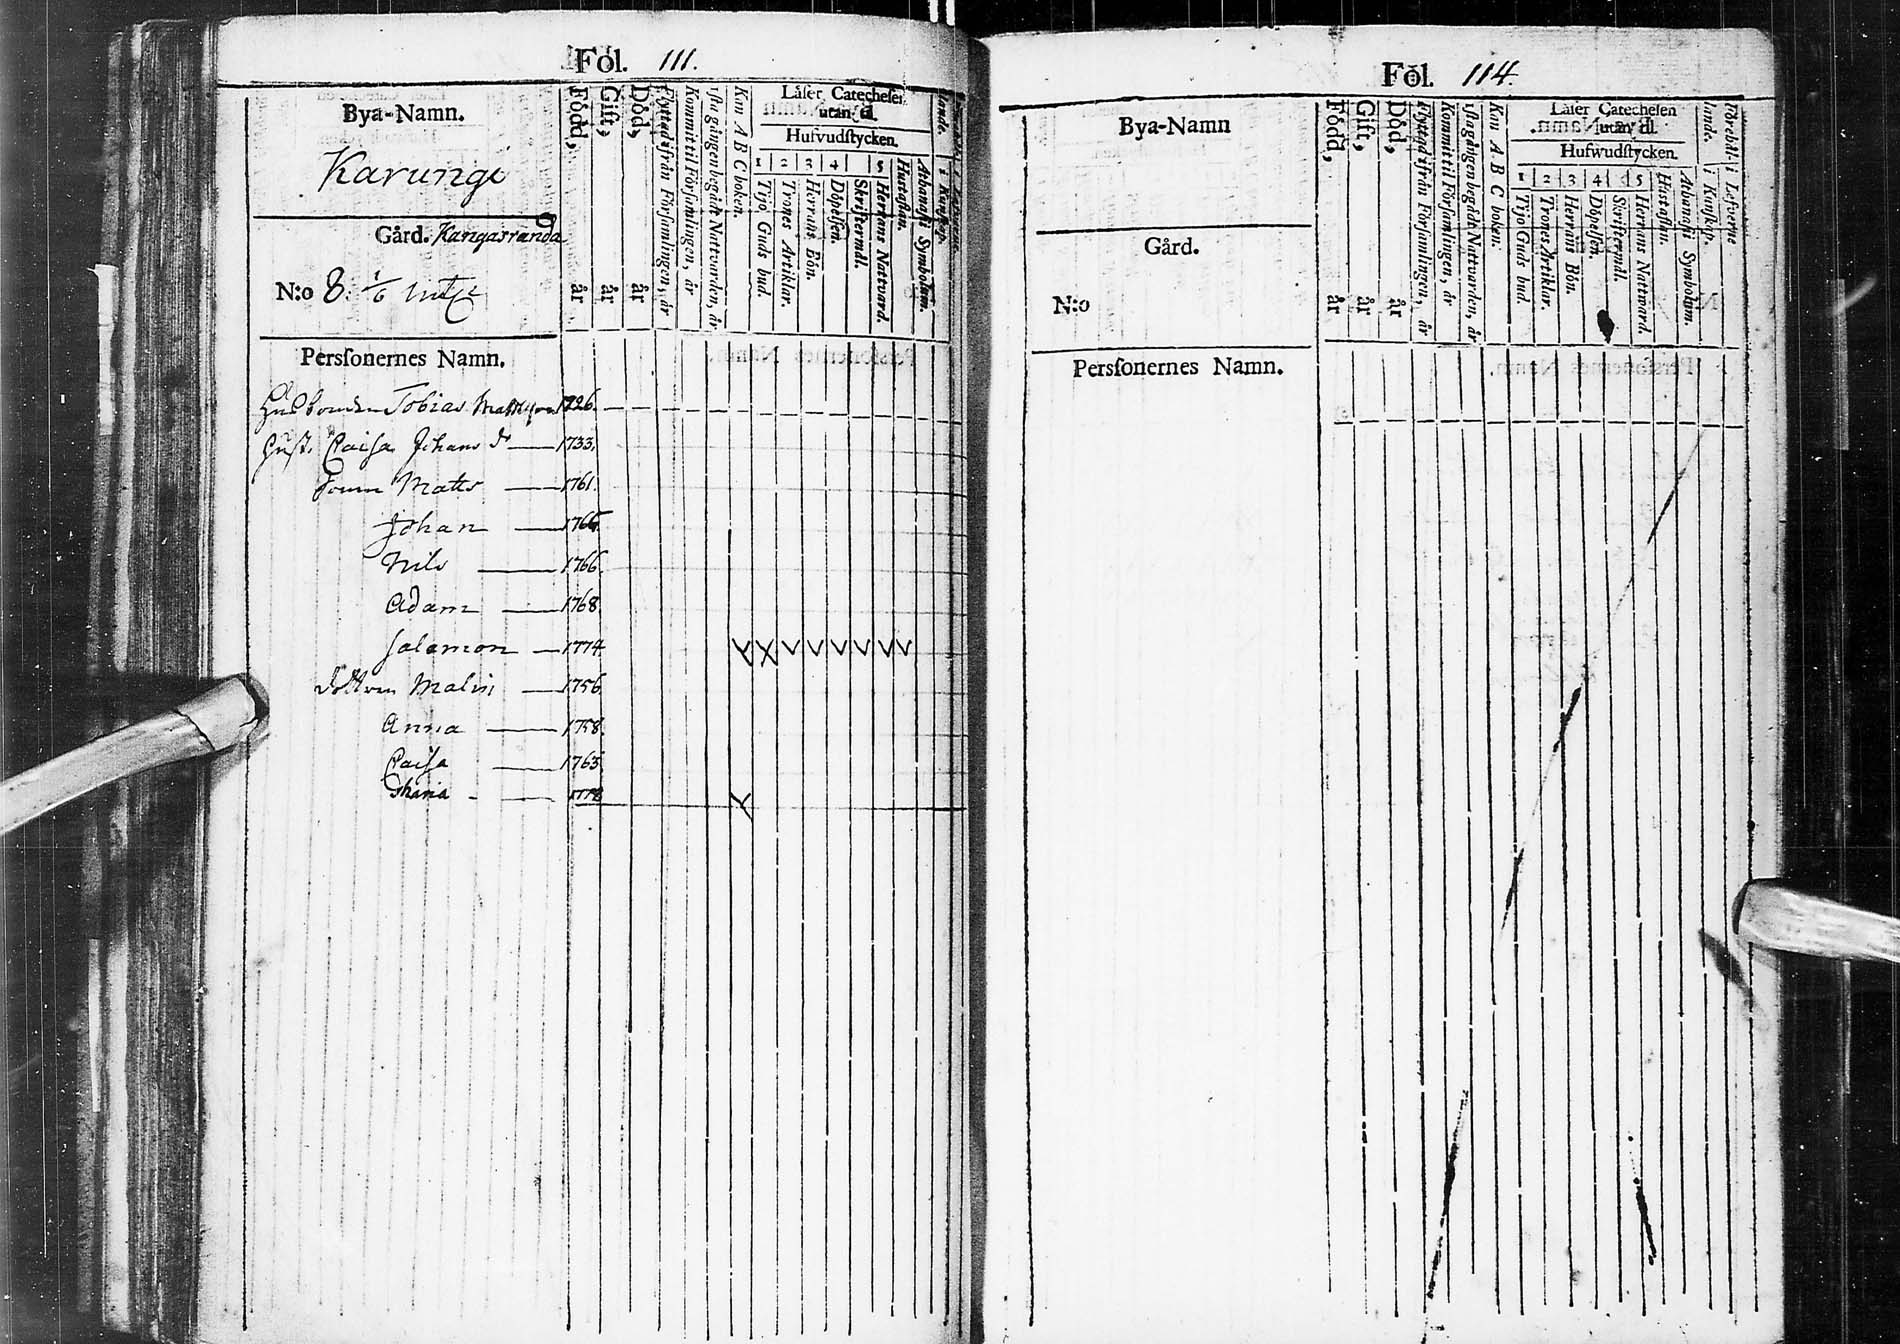 Föl. 111.
Bya-Namn.
Karungi
Gård. Kangasranda
N:o 8. 1/6
Född, år
Gift, år
Död, år
Flyttad ifrån Församlingen, år
Kommit til Församlingen, år
1sta gången begådt Nattvarden, år
Kan A B C boken.
Låser Catechesen utan til.
Hufvudstycken.
1 2 3 4 5
Tijo Guds bud.
Trones Artiklar.
Herrans Bön.
Döpelsen.
Skriftermål.
Herrans Nattvard.
Hustaflan.
Athanasii Symbolum.
i Kunskap.
Persſonernes Namn.
Tobias Mattsson 1726.
Hust. Caisa Johans dr 1733.
Sonen Matts 1761.
Johan 1766
Nils 1766.
Adam 1768.
Salamon 1774
Dottren Malin 1756
Anna 1758.
Caisa 1763
Maria 1778
Föl. 114.
Bya-Namn
Gård.
N:o
Född, år
Gift, år
Död, år
Flyttad ifrån Församlingen, år
Kommit til Församlingen, år
1sta gången begådt Nattvarden, år
Kan A B C boken.
Låser Catechesen utan til.
Hufwudstycken.
1 2 3 4 5
Tijo Guds bud
Trones Artiklar.
Herrans Bön.
Döpelsen.
Skriftermål.
Herrans Nattward.
Hustaflan.
Athanasii Symbolum.
i Kunskap.
i Lefverne
Persſonernes Namn.